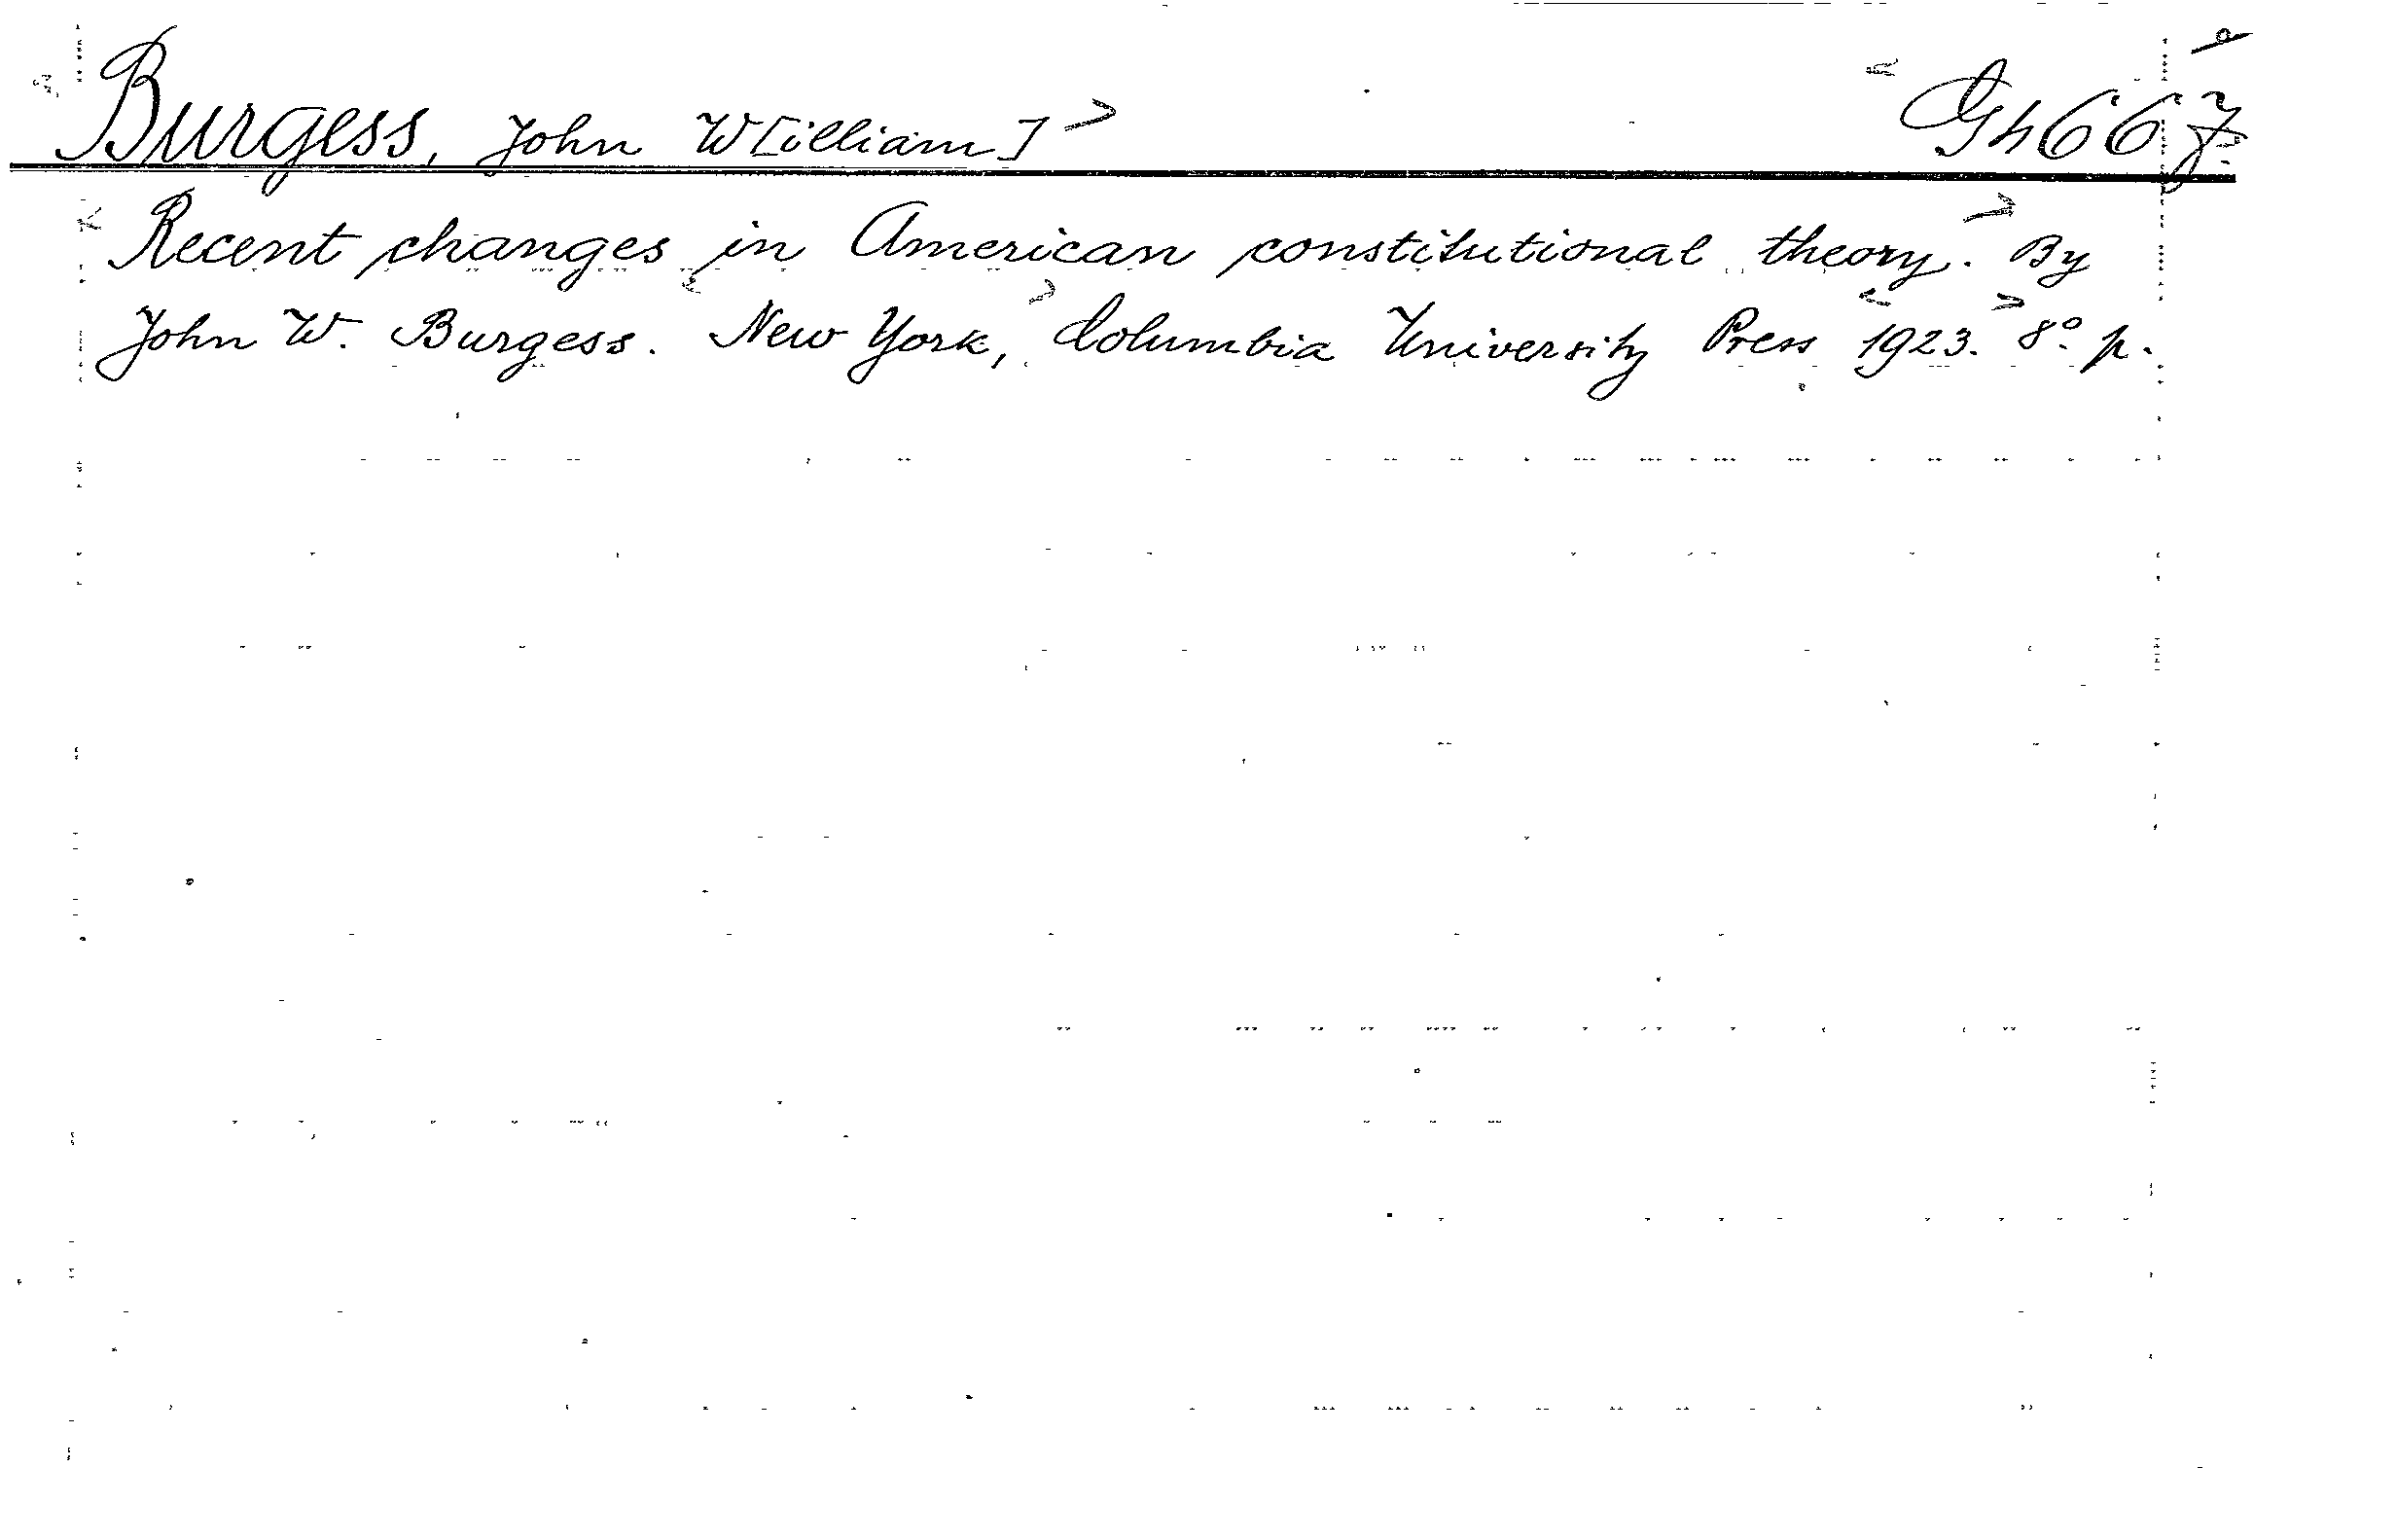 Burgess, John W[illiam] Gh667
Recent changes in American constitutional theory. By
John W. Burgess. New York, Columbia University Press 1923. 8° p.